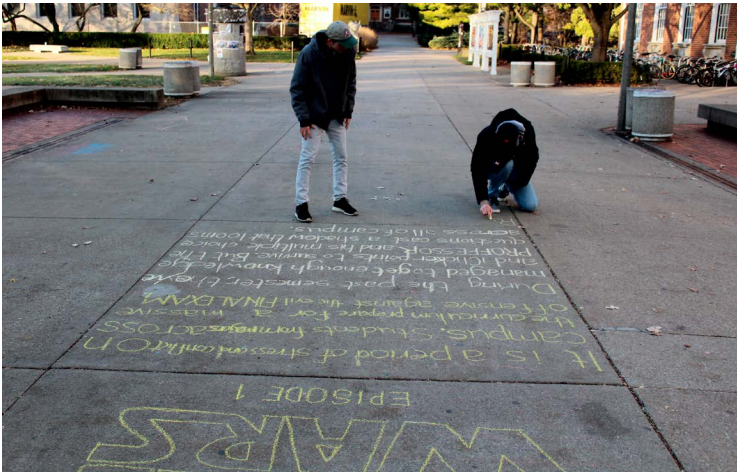 WARS
EPISODE 1
It is a period of stress and conflict ON
campus. Students from majors across
the curriculum prepare for a massive
offensive against the evil FINAL EXAM
During the past semester,
managed to get enough knowledge
and iClicker points to survive. But the
PROFFESSOR and his multiple choice
questions cast a shadow that looms
across all of campus.